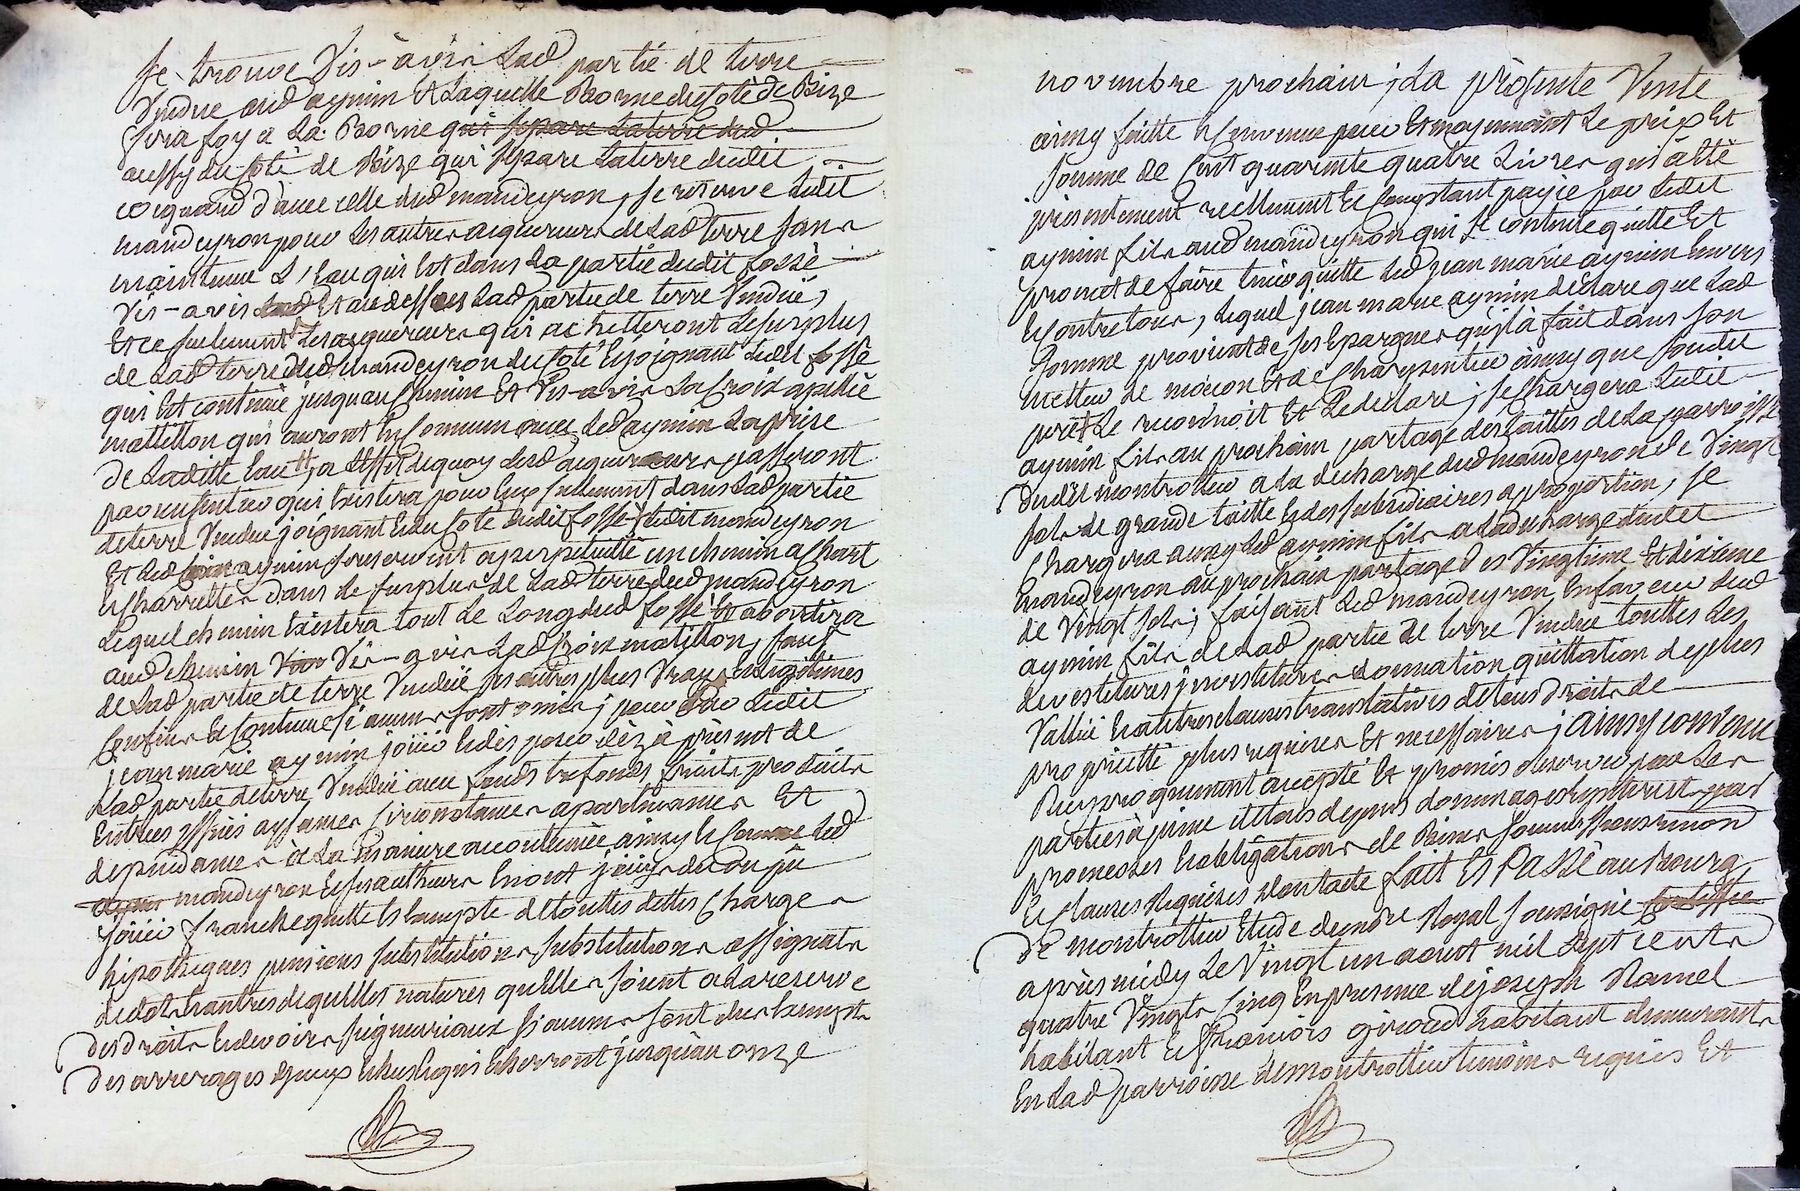 se trouve Vis-à vis Lad partie de terre
Vendue aud aymin Et Laquelle Borne du Coté de Bize
sera foy a La Borne qui separe Laterre dud
aussy du Coté de Bize qui separe Laterre dudit
coiquard d'avec celle dud mandeyron, se reserve Ledit
mandeyron pour Les autres acquereurs de Lad terre sans
maintenue L'eau qui Est dans La partie dudit fossé
Vis-a vis Et au dessus Lad partie de terre Vendue,
Et ce seulement Les acquereurs qui achetteront Le surplus
de Lad terre dud mandeyron du Coté Et joignant Ledit fossé
qui Est continué jusqu au Chemin Et Vis-a vis La Croix apellée
matillon qui auront En Commun avec Led aymin La prise
de Laditte Eau, a L'effet de quoy Lesd acquereurs passeront
par un sentier qui Existera pour Eux seulement dans Lad partie
de terre Vendue joignant Et du Coté dudit fossé, Ledit mandeyron
Et Led aymin feront a perpetuité un chemin a Chart
Et Charrettes dans Le surplus de Lad terre dud mandeyron
Lequel chemin Existera tout Le Long dud fossé Et aboutira
aud chemin Vis-a vis Lad Croix matillon, sauf
de Lad partie de terre Vendue ses autres plus Vrays Et Legitimes
Confins Et Contenue si aucuns sont omis; pour Par Ledit
jean marie aymin jouir Et des poser dez à present de
Lad partie de terre Vendue avec fonds tresfonds fruits produits
Entrées issües aysances Circonstances apartenances Et
dependances à La maniere accoutumée ainsy Led
mandeyron Et ses autheurs En ont jouy du ou pû
jouir franche quitte Et Exempte de touttes dettes Charges
hipotheques pensions substitutions assignats
de dot Et autres de quelles natures quelles soient a La reserve
des droits Et devoirs seigneuriaux si aucuns sont dus Exempts
des arrerages d'yceux Echus Lequels Echerront jusqu'au onze
novembre prochain; La présente Vente
ainsy faitte Et Convenue pour Et moyennant Le prix Et
somme de Cent quarante quatre Livres qui a Eté
presentement reellement Et Comptant payée par Ledit
aymin fils aud mandeyron qui s'en contente quitte Et
promet de faire tenir quitte Led jean marie aymin Envers
Et contre tous, Lequel jean marie aymin declare que Lad
somme provient de ses Epargnes qu'il à fait dans son
mettier de maçon Et de Charpentier ainsy que sondit
pere Le reconnoit Et Le declare; se Chargera Ledit
aymin fils au prochain partage des tailles de La parroisse
dudit montrottier a La decharge dud mandeyron de Vingt
sols de grande taille Et des subsidiaires a proportion, se
Chargera aussy Led aymin fils a La decharge dudit
mandeyron au prochain partage des Vingtieme Et dixieme
de Vingt sols; faisant Led mandeyron En faveur dud
aymin fils de Lad partie de terre Vendue touttes Les
devestitures investitures donnation quittation de plus
Vallüe Et autres clauses translatives de tous droits de
proprieté plus requises Et necessaires; ainsy convenu
Reciproquement accepté Et promis observer par Les
parties à peine de tous depens dommages Et interest par
promesses Et obligations de Biens soumissions renon
Et Clauses Requises dont acte fait Et Passé au Bourg
de montrottier Etude de notre Royal soussigné
après midy Le Vingt un aoust mil sept cents
quatre Vingts Cinq En presence de joseph Ramel
habitant Et François giroud habitant demeurants
En Lad parroisse de montrottier temoins requis Et